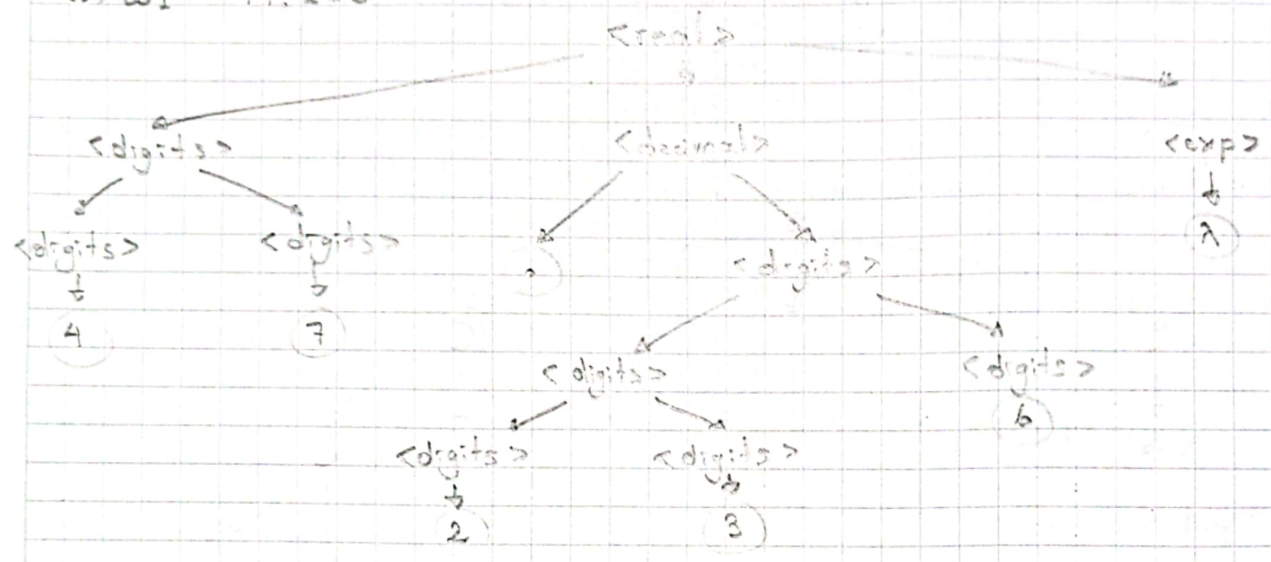 <real>
<digits> <decimal> <exp>
<digits> <digits> . <digits> λ
4 7 <digits> <digits>
6
<digits> <digits>
2 3